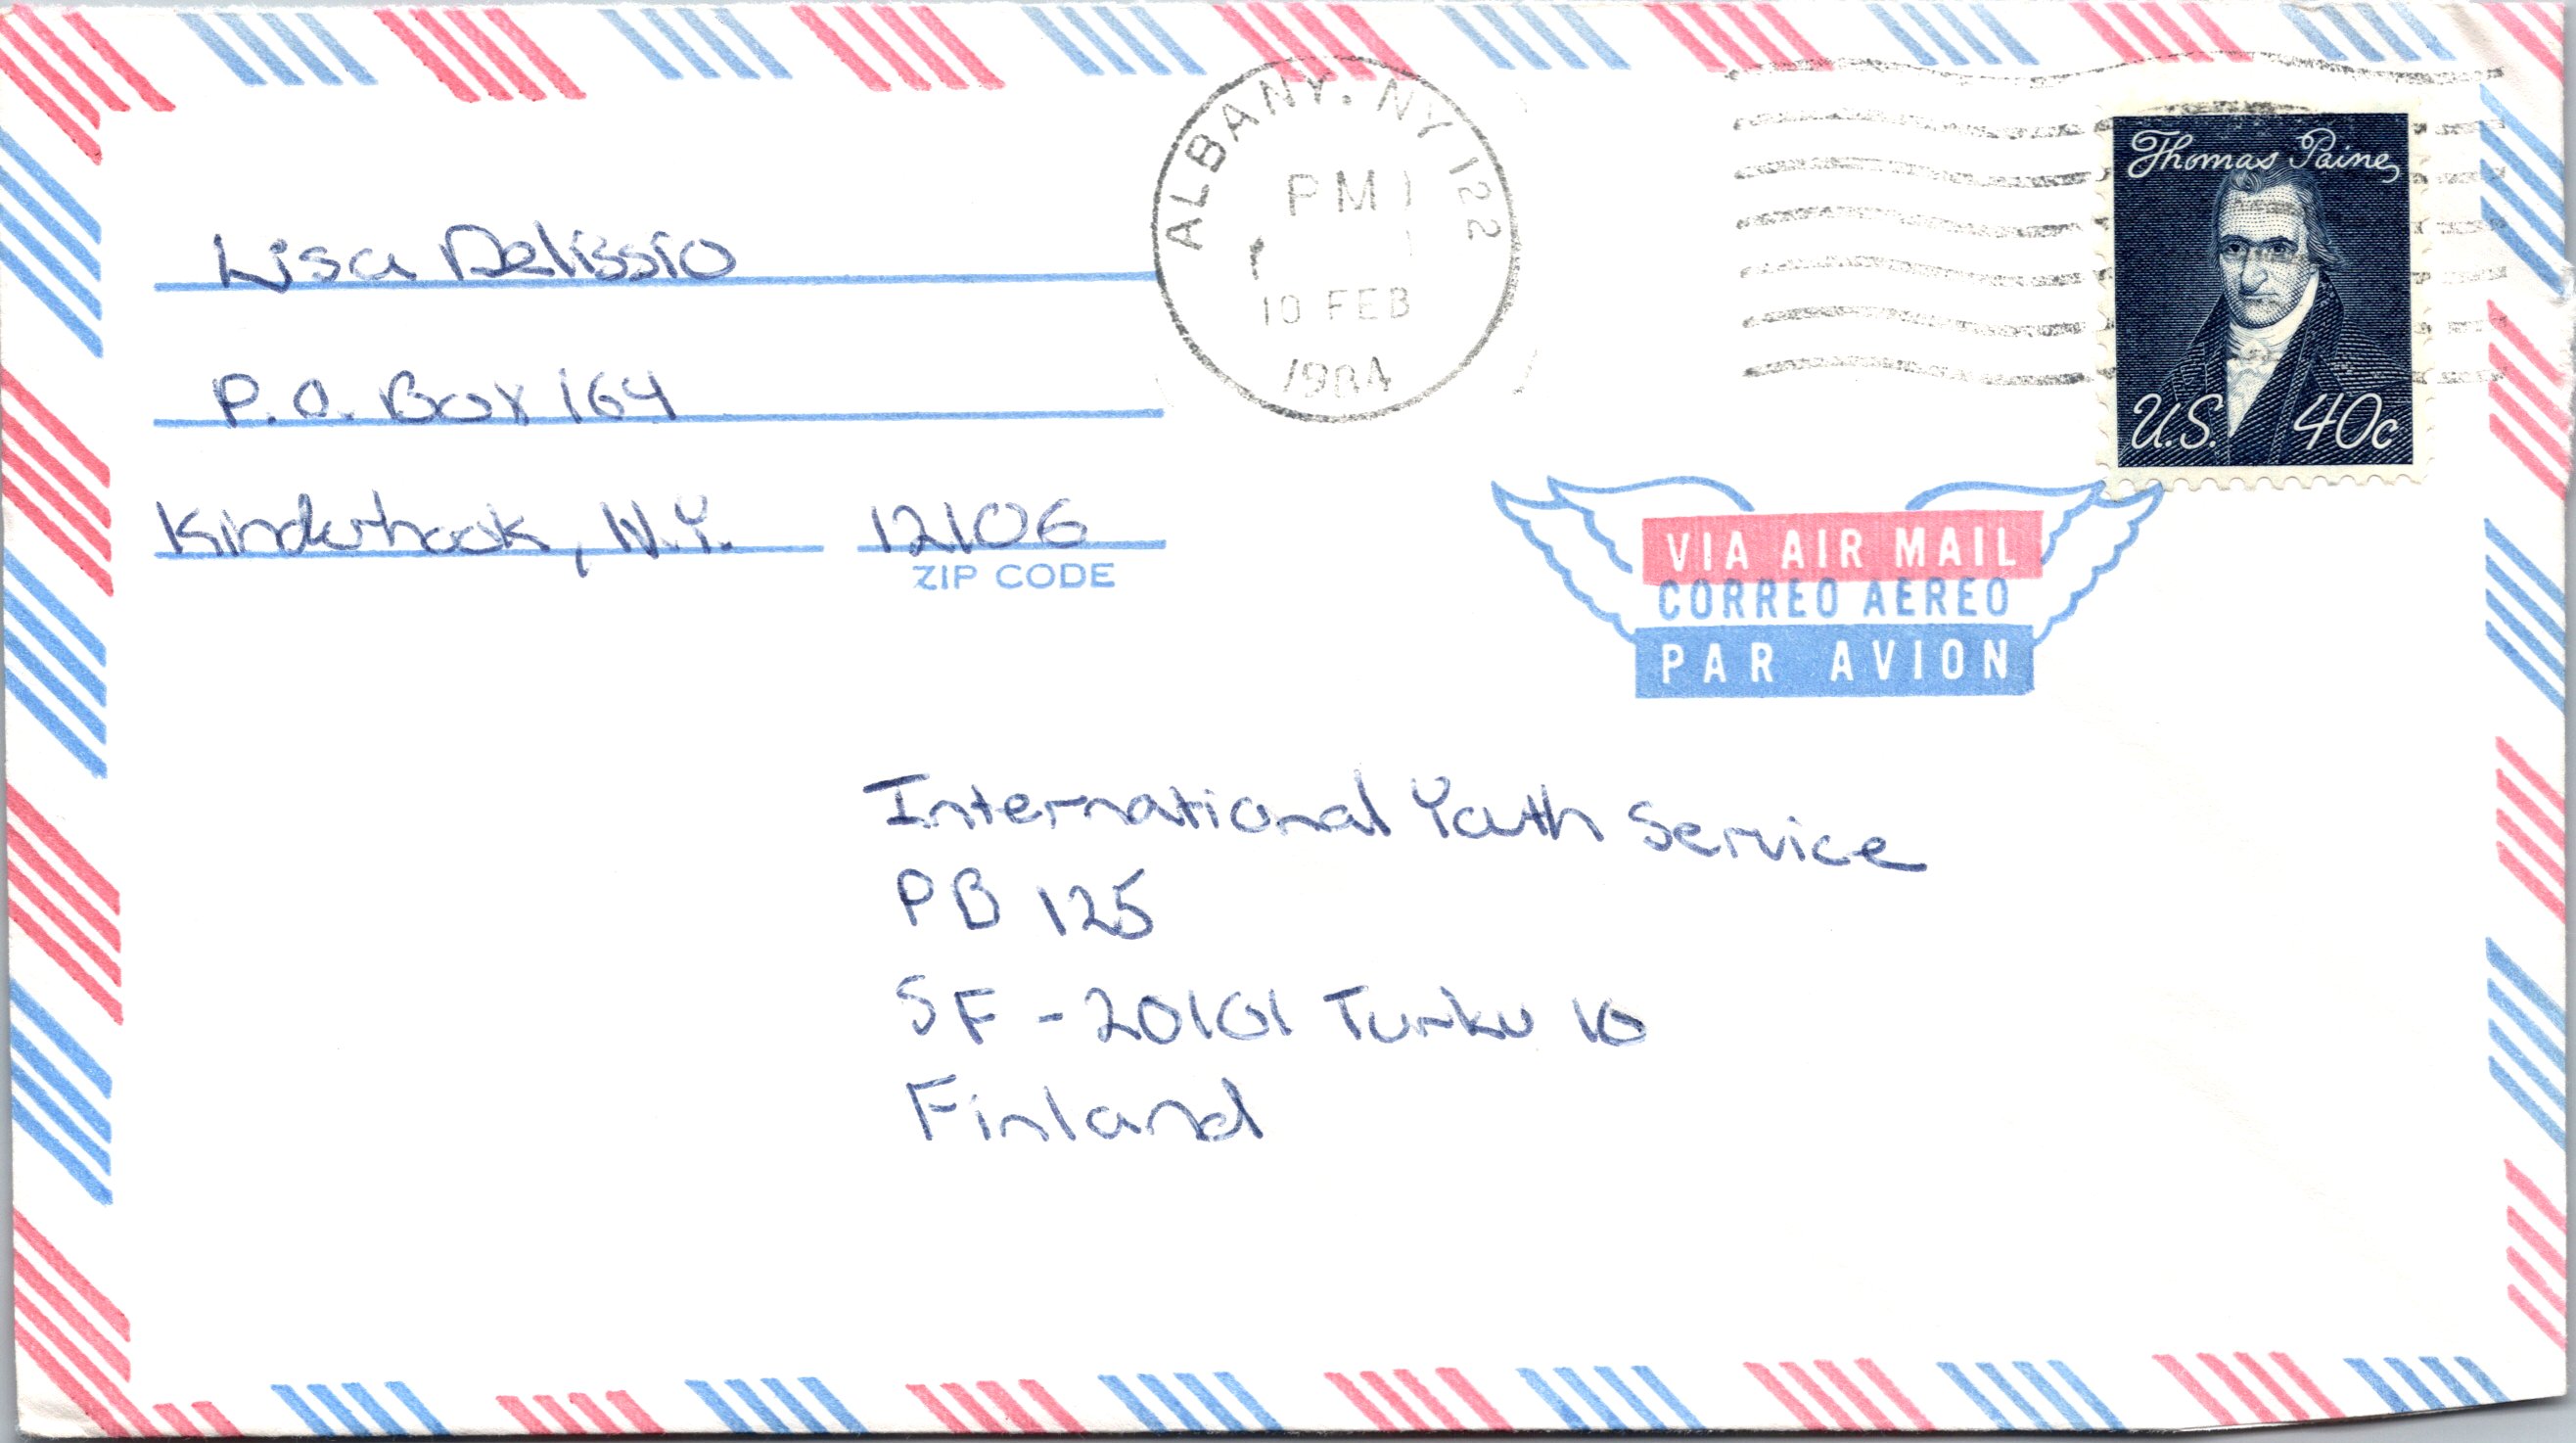 Lisa Delissio
P.O. Box 164
Kinderhook, N.Y. 12106
ZIP CODE
ALBANY, NY 122
PM
10 FEB
1984
Thomas Paine
U.S. 40c
VIA AIR MAIL
CORREO AEREO
PAR AVION
International Youth Service
PB 125
SF - 20101 Turku 10
Finland